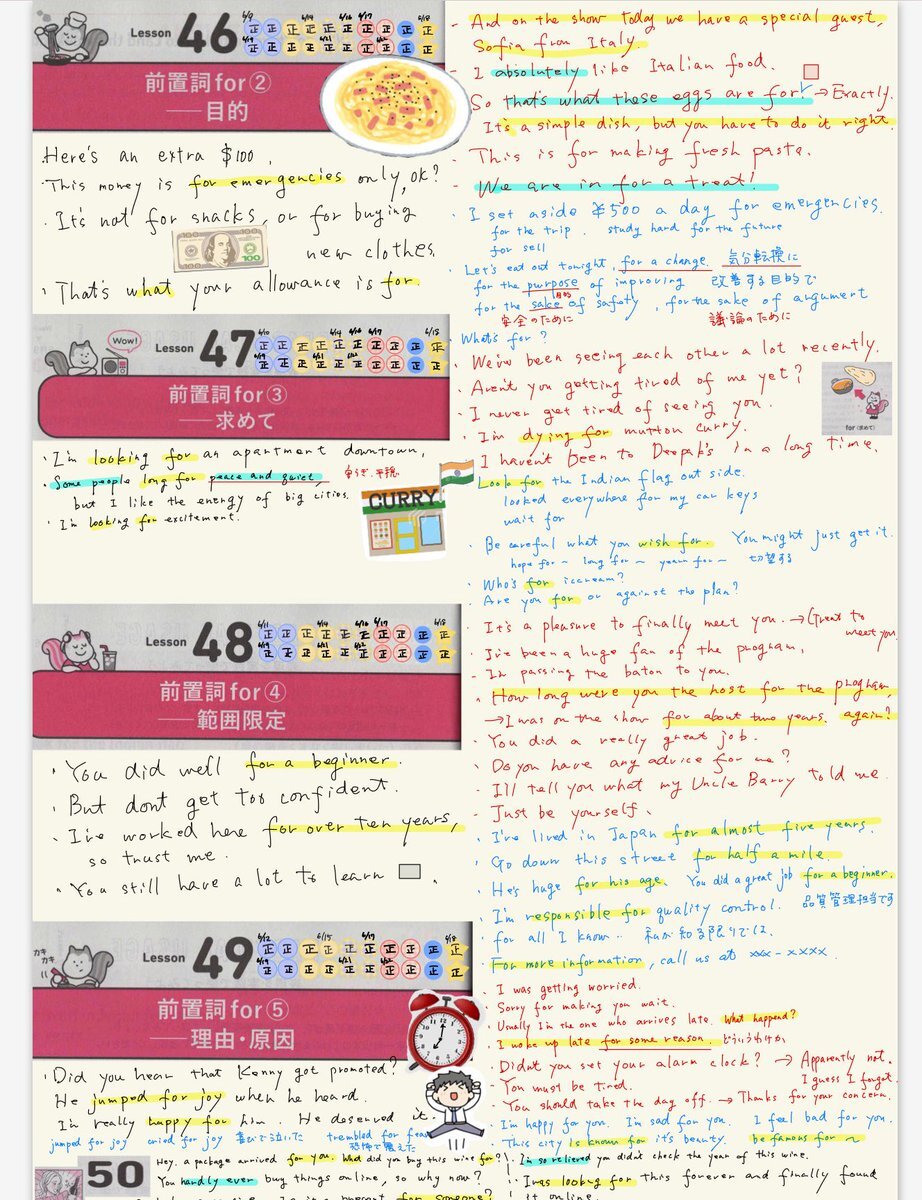 Lesson 46
前置詞for②
——目的
Here's an extra $100.
・This money is for emergencies only, ok?
・It's not for snacks, or for buying
new clothes.
100
・That's what your allowance is for.
- And on the show today we have a special guest,
Sofia from Italy.
- I absolutely like Italian food.
So that's what these eggs are for! → Exactly.
It's a simple dish, but you have to do it right.
- This is for making fresh pasta.
- We are in for a treat!
・I set aside ¥500 a day for emergencies.
for the trip. study hard for the future
for sell
Let's eat out tonight, for a change. 気分転換に
for the purpose of improving 改善する目的で
目的
for the sake of safety, for the sake of argument
安全のために 議論のために
・What's for?
Wow!
Lesson 47
前置詞for③
——求めて
・I'm looking for an apartment downtown,
・Some people long for peace and quiet, 安らぎ、平穏
but I like the energy of big cities.
・I'm looking for excitement.
CURRY
・We've been seeing each other a lot recently.
・Aren't you getting tired of me yet?
・I never get tired of seeing you.
・I'm dying for mutton curry.
I haven't been to Deepak's in a long time.
for (求めて)
Look for the Indian flag out side.
looked everywhere for my car keys
wait for
・Be careful what you wish for. You might just get it.
hope for ~ long for ~ yearn for ~ 切望する
・Who's for icecream?
・Are you for or against the plan?
Lesson 48
前置詞for④
——範囲限定
・You did well for a beginner.
・But dont get too confident.
・I've worked here for over ten years,
so trust me.
・You still have a lot to learn.
・It's a pleasure to finally meet you. → (Great to
meet you.
・I've been a huge fan of the program,
- I'm passing the baton to you.
・How long were you the host for the program,
again?
→ I was on the show for about two years.
・You did a really great job.
・Do you have any advice for me?
・I'll tell you what my Uncle Barry told me.
- Just be yourself.
・I've lived in Japan for almost five years.
・Go down this street for half a mile.
・He's huge for his age. You did a great job for a beginner.
・I'm responsible for quality control. 品質管理担当です
・for all I know.. 私が知る限りでは、
・For more information, call us at xxx-xxxx.
カキカキ
Lesson 49
前置詞for⑤
——理由・原因
・Did you hear that Kenny got promoted?
He jumped for joy when he heard.
I'm really happy for him. He deserved it.
jumped for joy cried for joy 喜びで泣いた trembled for fear
恐怖で震えた
・I was getting worried.
・Sorry for making you wait.
・Usually I'm the one who arrives late. What happend?
・I woke up late for some reason. どういうわけか
・Didn't you set your alarm clock? → Apparently not.
I guess I forgot.
・You must be tired.
・You should take the day off. → Thanks for your concern.
・I'm happy for you. I'm sad for you. I feel bad for you.
・This city is known for it's beauty. be famous for ~
50
Hey, a package arrived for you. What did you buy this wine for?
You hardly ever buy things online, so why now?
for someone?
・I'm so relieved you didn't check the year of this wine.
・I was looking for this forever and finally found
it online.